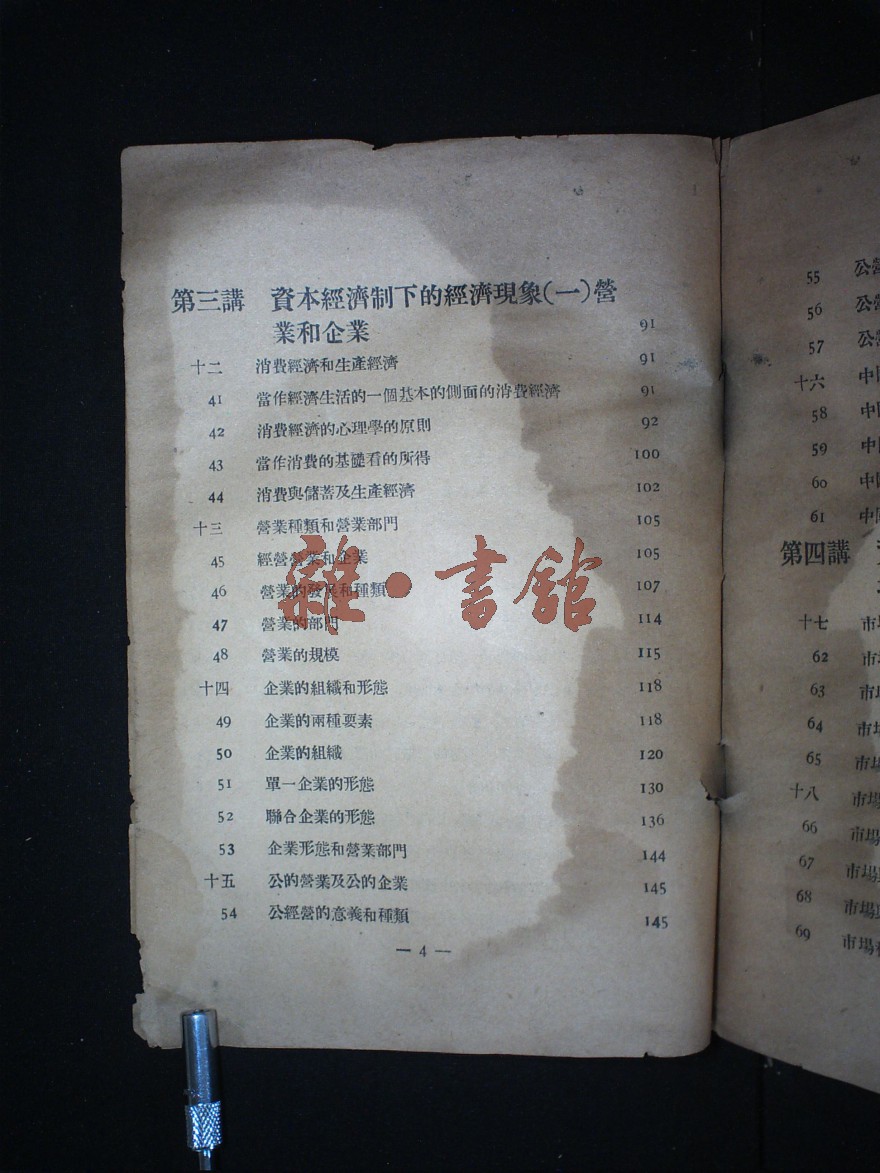 第三講 資本經濟制下的經濟現象(一)營
業和企業 91
十二 消費經濟和生產經濟 91
41 當作經濟生活的一個基本的側面的消費經濟 91
42 消費經濟的心理學的原則 92
43 當作消費的基礎看的所得 100
44 消費與儲蓄及生產經濟 102
十三 營業種類和營業部門 105
45 經營營業和企業 105
46 營業的發展和種類 107
47 營業的部門 114
48 營業的規模 115
十四 企業的組織和形態 118
49 企業的兩種要素 118
50 企業的組織 120
51 單一企業的形態 130
52 聯合企業的形態 136
53 企業形態和營業部門 144
十五 公的營業及公的企業 145
54 公經營的意義和種類 145
— 4 —
雜·書館
55 公營
56 公
57 公
十六 中
58 中
59 中
60 中
61 中
第四講
十七 市
62 市
63 市
64 市
65 市
十八 市場
66 市場
67 市場
68 市場
69 市場